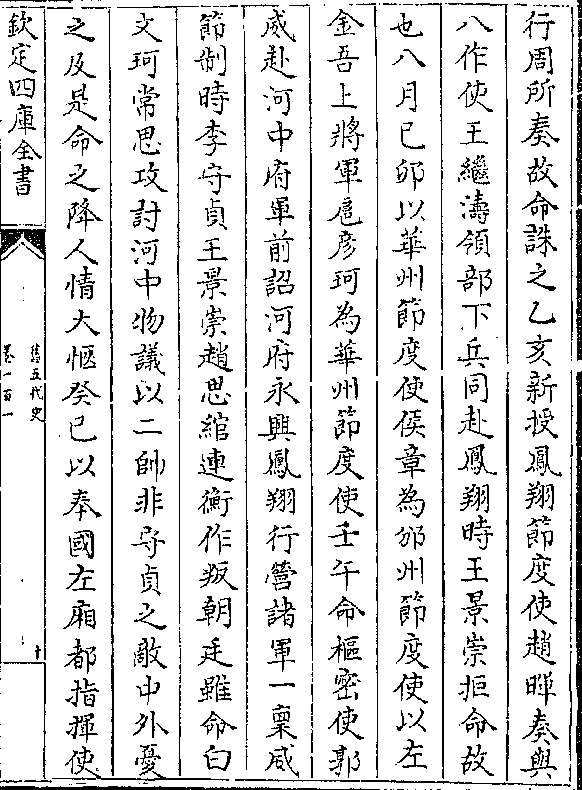 行周所奏故命誅之乙亥新授鳳翔節度使趙暉奏與
八作使王繼濤領部下兵同赴鳳翔時王景崇拒命故
也八月己卯以華州節度使侯章為邠州節度使以左
金吾上將軍扈彥珂為華州節度使壬午命樞密使郭
威赴河中府軍前詔河府永興鳳翔行營諸軍一稟威
節制時李守貞王景崇趙思綰連衡作叛朝廷雖命白
文珂常思攻討河中物議以二帥非守貞之敵中外憂
之及是命之降人情大愜癸巳以奉國左廂都指揮使
欽定四庫全書
舊五代史
卷一百一
十